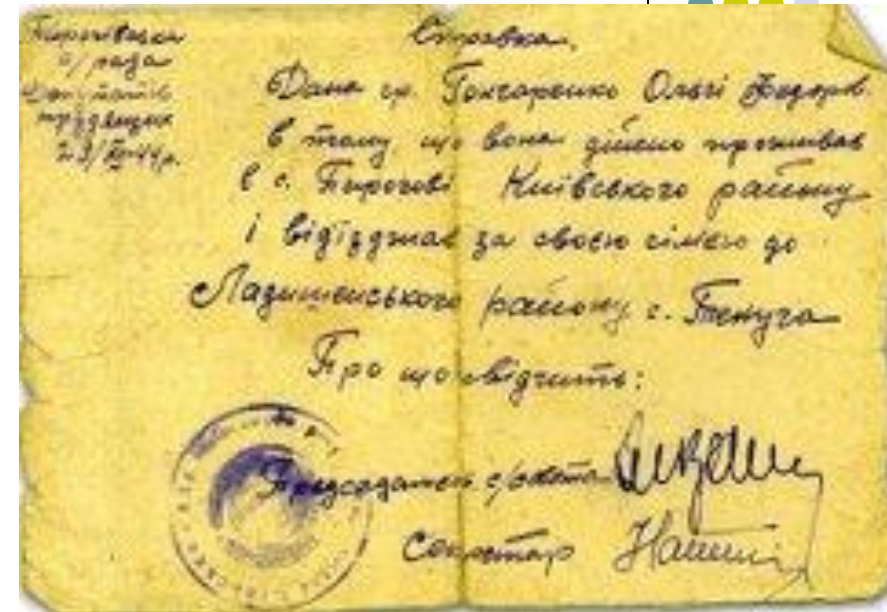 Пирогівська
с/рада
Депутатів
трудящих
29/XII-44р.
Справка.
Дана гр. Гончаренко Ользі Федорів.
в тому що вона дійсно проживає
в с. Пирогові Київського району
і відїзджає за своєю сімєю до
району с.
Про що свідчить:
Председатель с/совета
Секретар